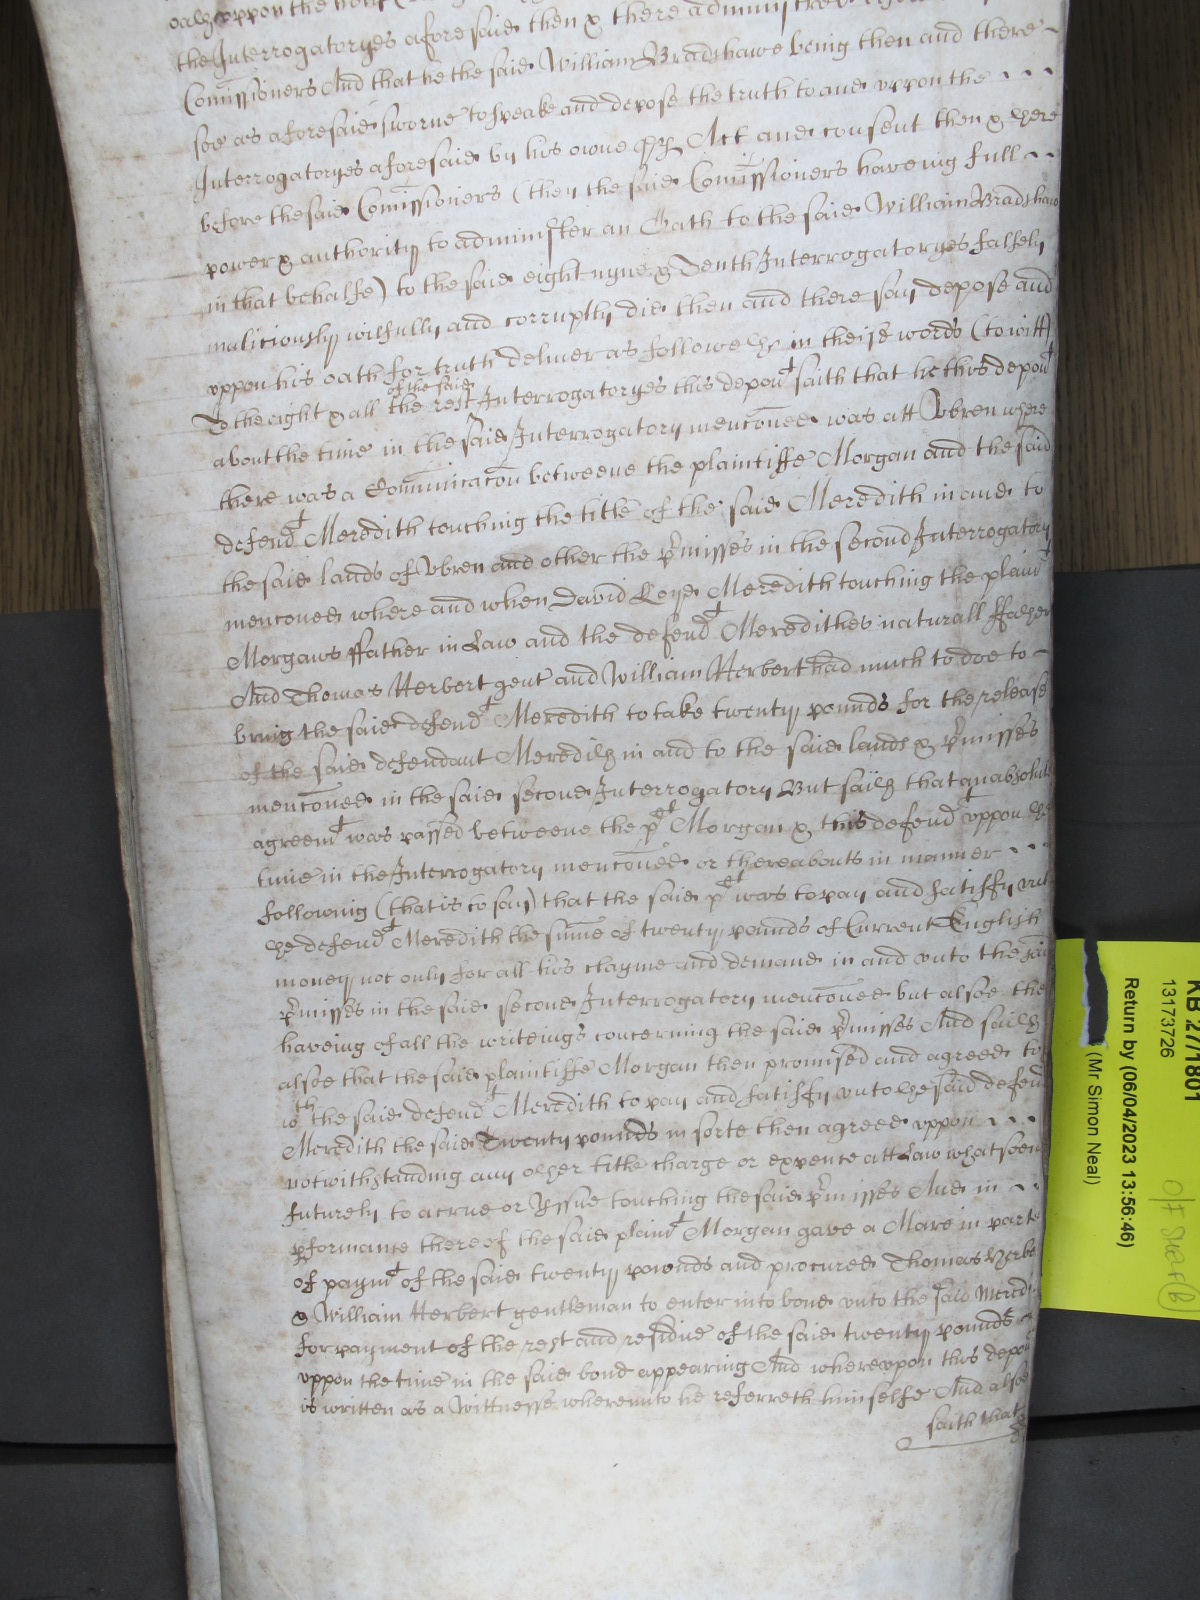 oath uppon the
the Interrogatoryes aforesaid then & there
Comissioners And that he the said William Bradshawe being then and there
soe as aforesaid sworne to speake and depose the truth to and uppon the
Interrogatoryes aforesaid by his owne Act and consent then & there
before the said Comissioners (they the said Comissioners haveing full
power & authority to administer an Oath to the said William Bradshaw
in that behalfe) to the said eight nyne & Tenth Interrogatoryes falsely
maliciously wilfully and corruptly did then and there say depose and
uppon his oath for truth deliver as followeth in theise words (to witt)
To the eight & all the rest of the said Interrogatoryes this depont saith that he this depont
about the time in the said Interrogatory menconed was att Vbren where
there was a Comunicacon betweene the plaintiffe Morgan and the said
defendt Meredith touching the title of the said Meredith in and to
the said lands of Vbren and other the pmisses in the second Interrogatory
menconed where and when David Loyd Meredith touching the plaint
Morgans ffather in Law and the defendt Merediths naturall ffather
And Thomas Herbert gent and William Herbert had much to doe to
bring the said defendt Meredith to take twenty pounds for the release
of the said defendant Meredith in and to the said lands & pmisses
menconed in the said second Interrogatory But saith that an absolute
agreemt was passed betweene the plt Morgan & this defendt uppon the
time in the Interrogatory menconed or thereabouts in manner
following (that is to say) that the said plt was to pay and satisfy unto
the defendt Meredith the sume of twenty pounds of Current English
money not only for all his clayme and demand in and unto the said
pmisses in the said second Interrogatory menconed but alsoe the
haveing of all the writeings concerning the said pmisses And saith
alsoe that the said plaintiffe Morgan then promised and agreed to
wth the said defendt Meredith to pay and satisfy unto the said defend
Meredith the said Twenty pounds in sorte then agreed uppon
notwithstanding any other title charge or expence att Law whatsoev
futurely to acrue or Yssue touching the said pmisses And in
pformance thereof the said plaint Morgan gave a Mare in parte
of paymt of the said twenty pownds and procured Thomas Herbe
& William Herbert gentleman to enter into bond unto the said Mered
for payment of the rest and residue of the said twenty pounds
uppon the time in the said bond appearing And whereuppon this depont
is written as a Wittnesse whereunto he referreth himselfe And alsoe
saith that
KB 27/1801
13173726
Return by (06/04/2023 13:56:46)
(Mr Simon Neal)